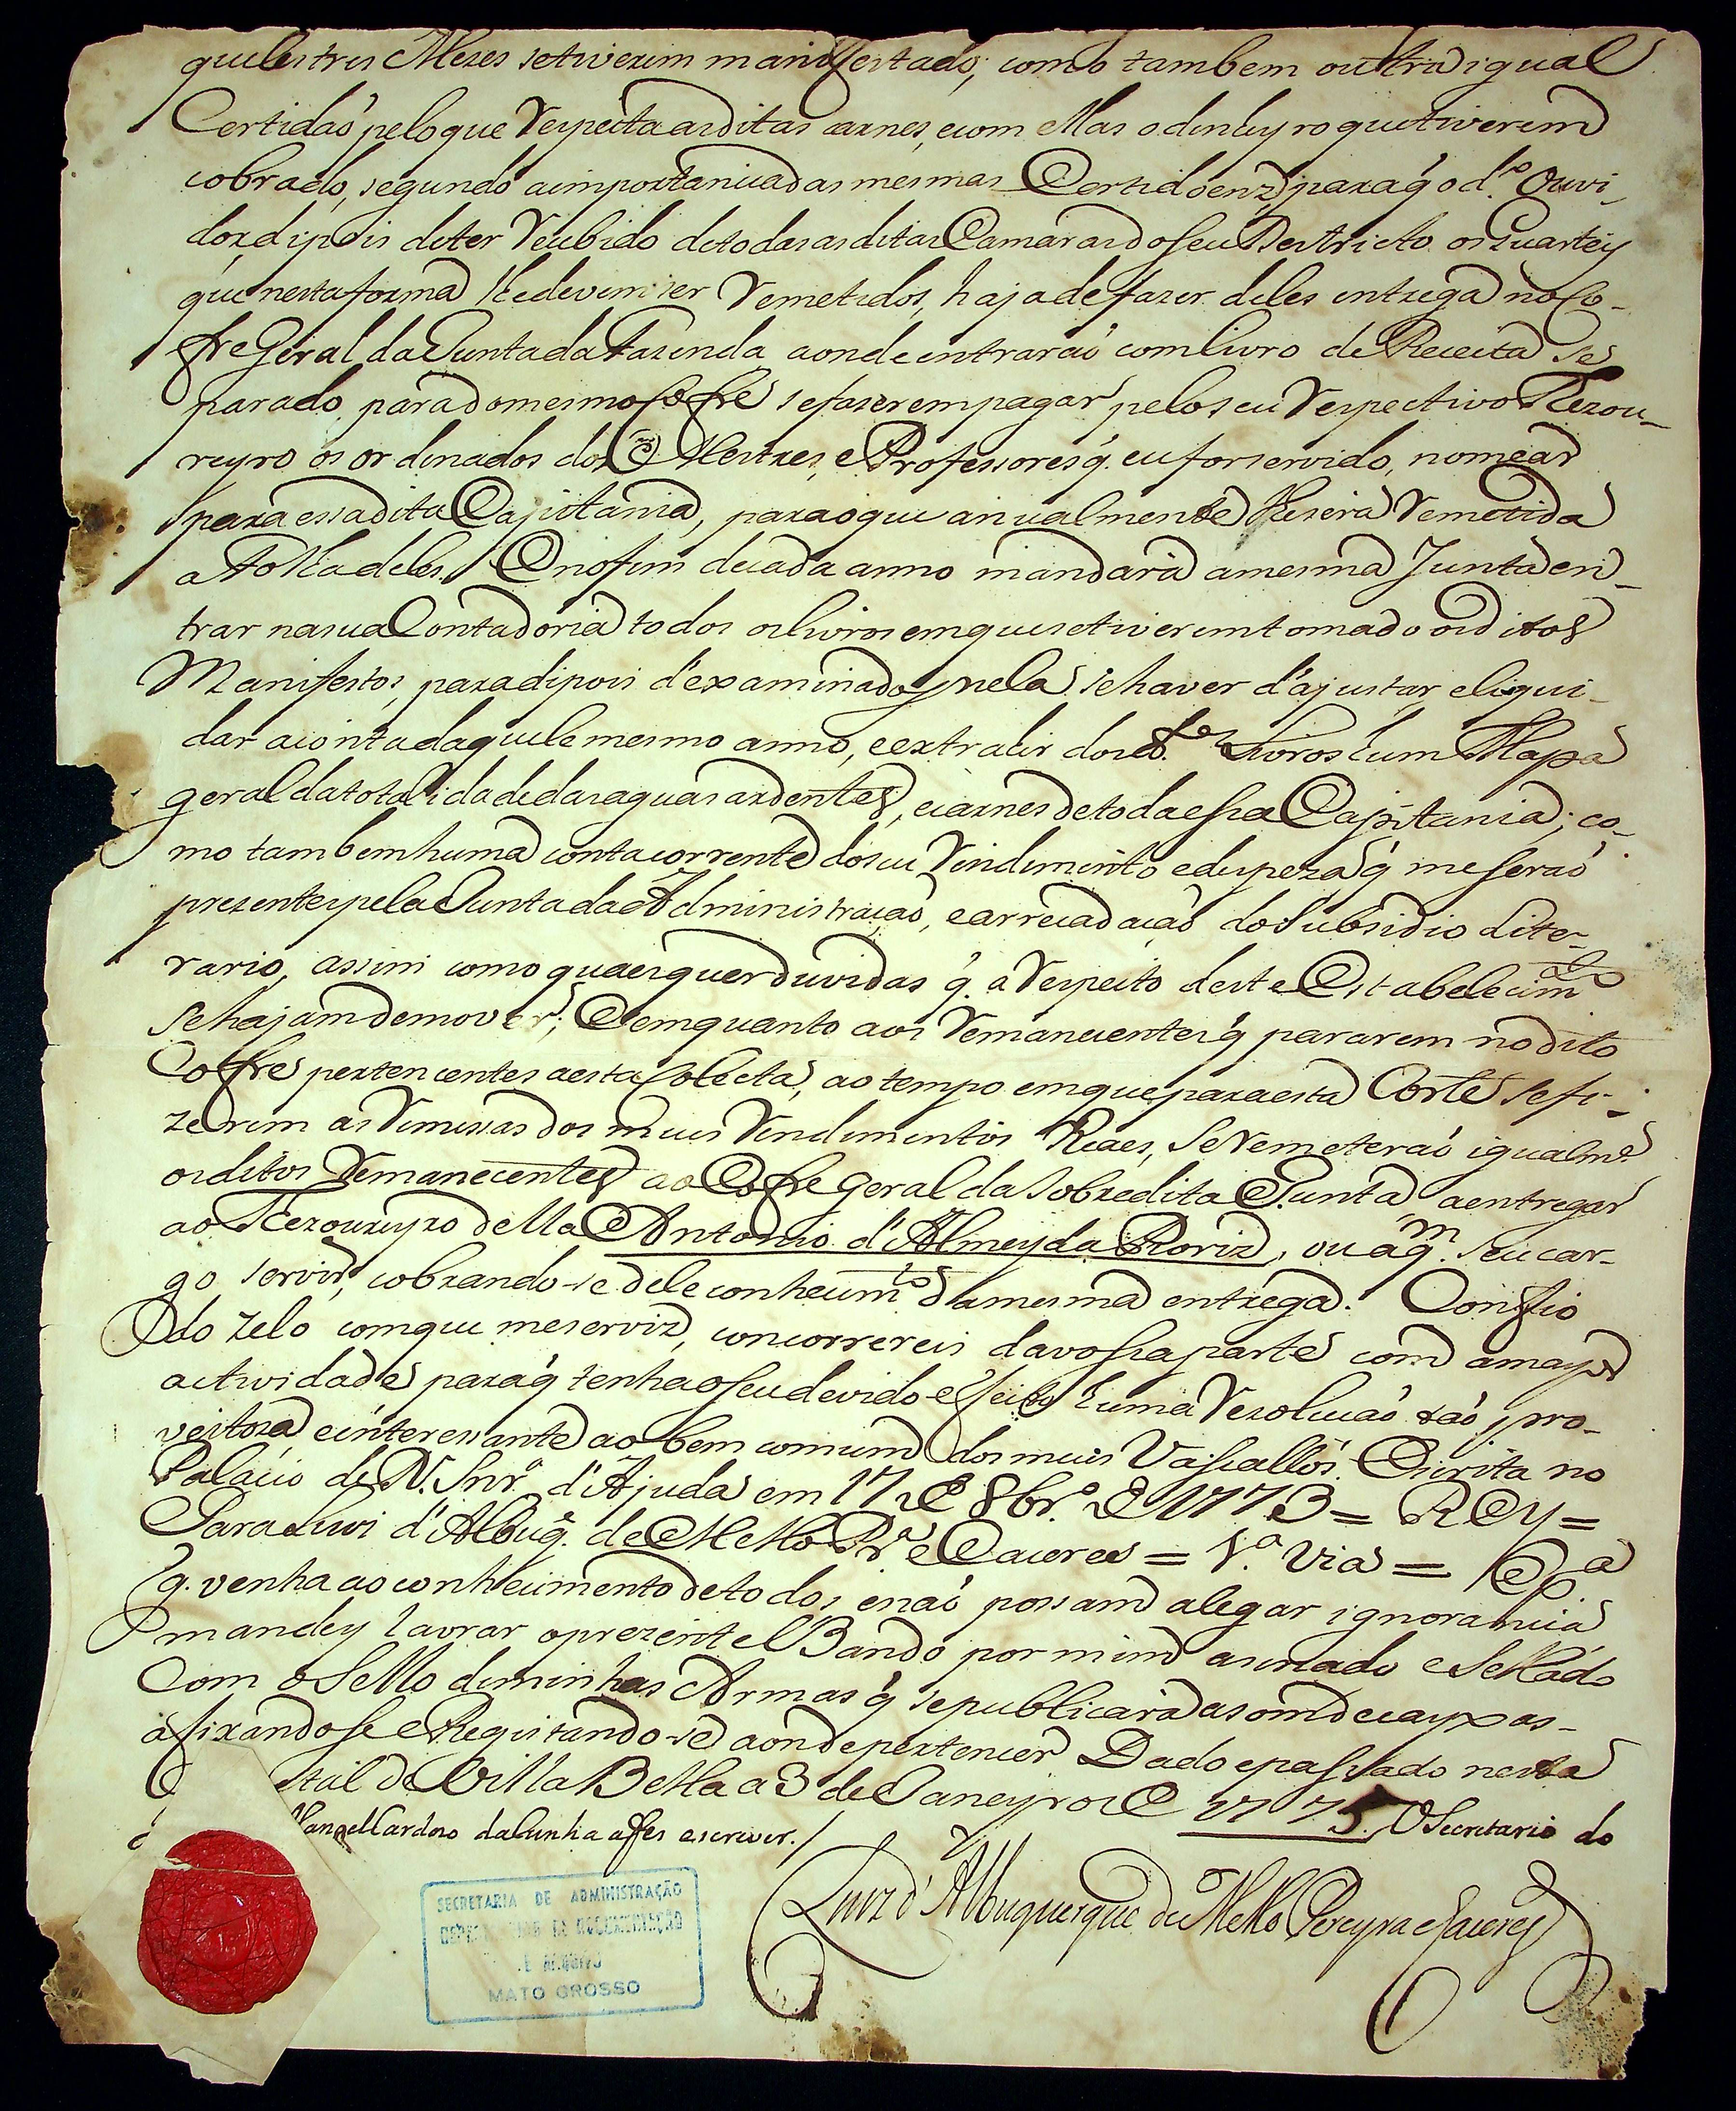 queles tres Mezes se tiverem manifestado; como tambem outra igual
Certidaõ pelo que respeita as ditas carnes, e com ellas o dinheyro que tiverem
cobrado, segundo a importancia das mesmas Certidoenz, para q̃ o d.º Ouvi-
dor, dipois de ter recebido de todas as ditas Camaras do seu Destricto os Quarteis
que nesta forma lhe devem ser remetidos, haja de fazer deles entrega no Co-
fre Geral da Junta da Fazenda aonde entraraõ com livro de Receita se
parado, para do mesmo Cofre se fazerem pagar pelo seu respectivo Tezou-
reyro os ordenados dos Mestres, e Professores q̃. eu for servido, nomear
para essa dita Capitania, para o que anualmente lhe será remetida
a Folha deles. E no fim de cada anno mandará a mesma Junta en-
trar na sua Contadoria todos os livros em que se tiverem tomado os ditos
Manifestos, para dipois d'examinados nela se haver d'ajustar, e liqui-
dar a conta daquele mesmo anno, e extrahir dos d.ºˢ Livros hum Mapa
geral da totalidade das aguas ardentes, e carnes de toda essa Capitania; co-
mo tambem huma conta corrente do seu rendimento e despeza q̃ me seraõ
prezentes pela Junta da Administraçaõ, e arrecadaçaõ do Subsidio Lite-
rario, assim como quaesquer duvidas q̃. a respeito deste Estabelecim.ᵗᵒ
se hajam de mover; E em quanto aos remanecentes q̃ pararem no dito
Cofre pertencentes a esta Colecta, ao tempo em que para esta Corte se fi-
zerem as remessas dos meus rendimentos Reaes, se remeteraõ igualm.ᵉ
os ditos remanecentes ao Cofre geral da sobredita Junta a entregar
ao Thezoureyro della Antonio d'Almeyda Roriz, ou a q.ᵐ seu car-
go servir, cobrando-se dele conhecim.ᵗᵒ da mesma entrega. Confio
do zelo com que me serviz, concorrereis da vossa parte com a mayor
actividade para q̃ tenha o seu devido effeito huma rezoluçaõ taõ pro-
veitoza e interessante ao bem comum dos meus Vassallos. Escrita no
Palacio de N. Snr.ª d'Ajuda em 17 de 8br.º de 1773 = REy =
Para Luis d'Albuq̃. de Mello Pr.ª e Caceres = 1.ª Via = E p.ª
q̃. venha ao conhecimento de todos, e naõ possam alegar ignorancia
mandey lavrar o prezente Bando por mim asinado e Sellado
Com o Sello de minhas Armas q̃ se publicará a som de cayxas-
afixandosse e Registando-se aonde pertencer. Dado e passado nesta
tal de Villa Bella a 3 de Janeyro de 1775. O Secretario do
Manoel Cardozo da Cunha a fes escrever./
Luiz d'Albuquerque de Mello Pereyra e Caceres
SECRETARIA DE ADMINISTRAÇÃO
DE DOCUMENTAÇÃO
E ARQUIVO
MATO GROSSO